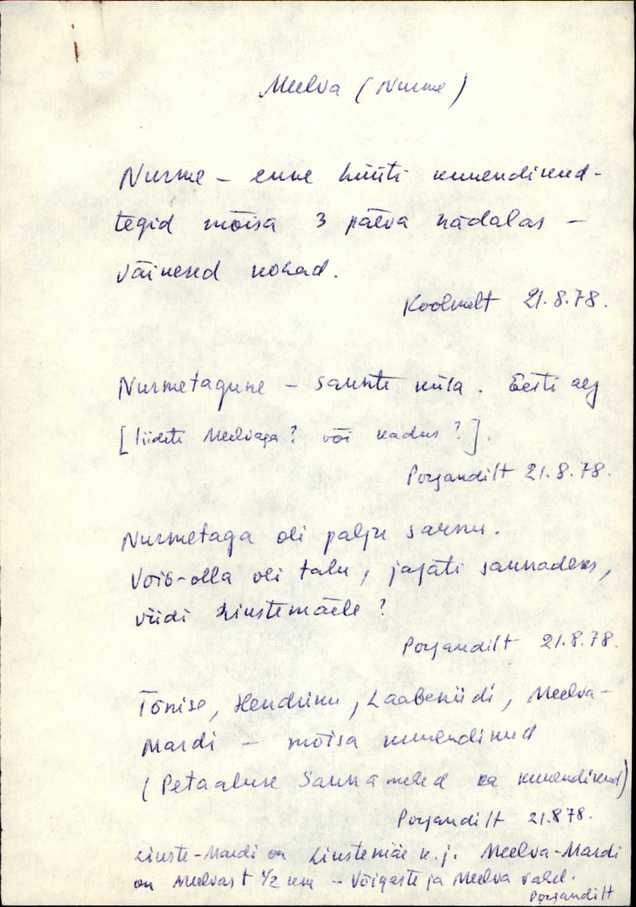 Meelva (Nurme)
Nurme – enne hüüti kuuendikud-
tegid mõisa 3 päeva nädalas –
väikesed kohad.
Koolmelt 21.8.78.
Nurmetagune – saunte küla. Eesti aeg
[liideti Meelvaga? või kadus?].
Porjandilt 21.8.78.
Nurmetaga oli palju saunu.
Võis-olla oli talu, jagati saunadeks,
viidi Liustemäele?
Porjandilt 21.8.78.
Tõnise, Hendriku, Laabeniidi, Meelva-
Mardi – mõisa kuuendikud
(Petaaluse Saunamehed ka kuuendikud)
Porjandilt 21.8.78.
Liuste-Mardi on Liustemäe k.j. Meelva-Mardi
on Meelvast 1/2 km – Võigaste ja Meelva vahel.
Porjandilt